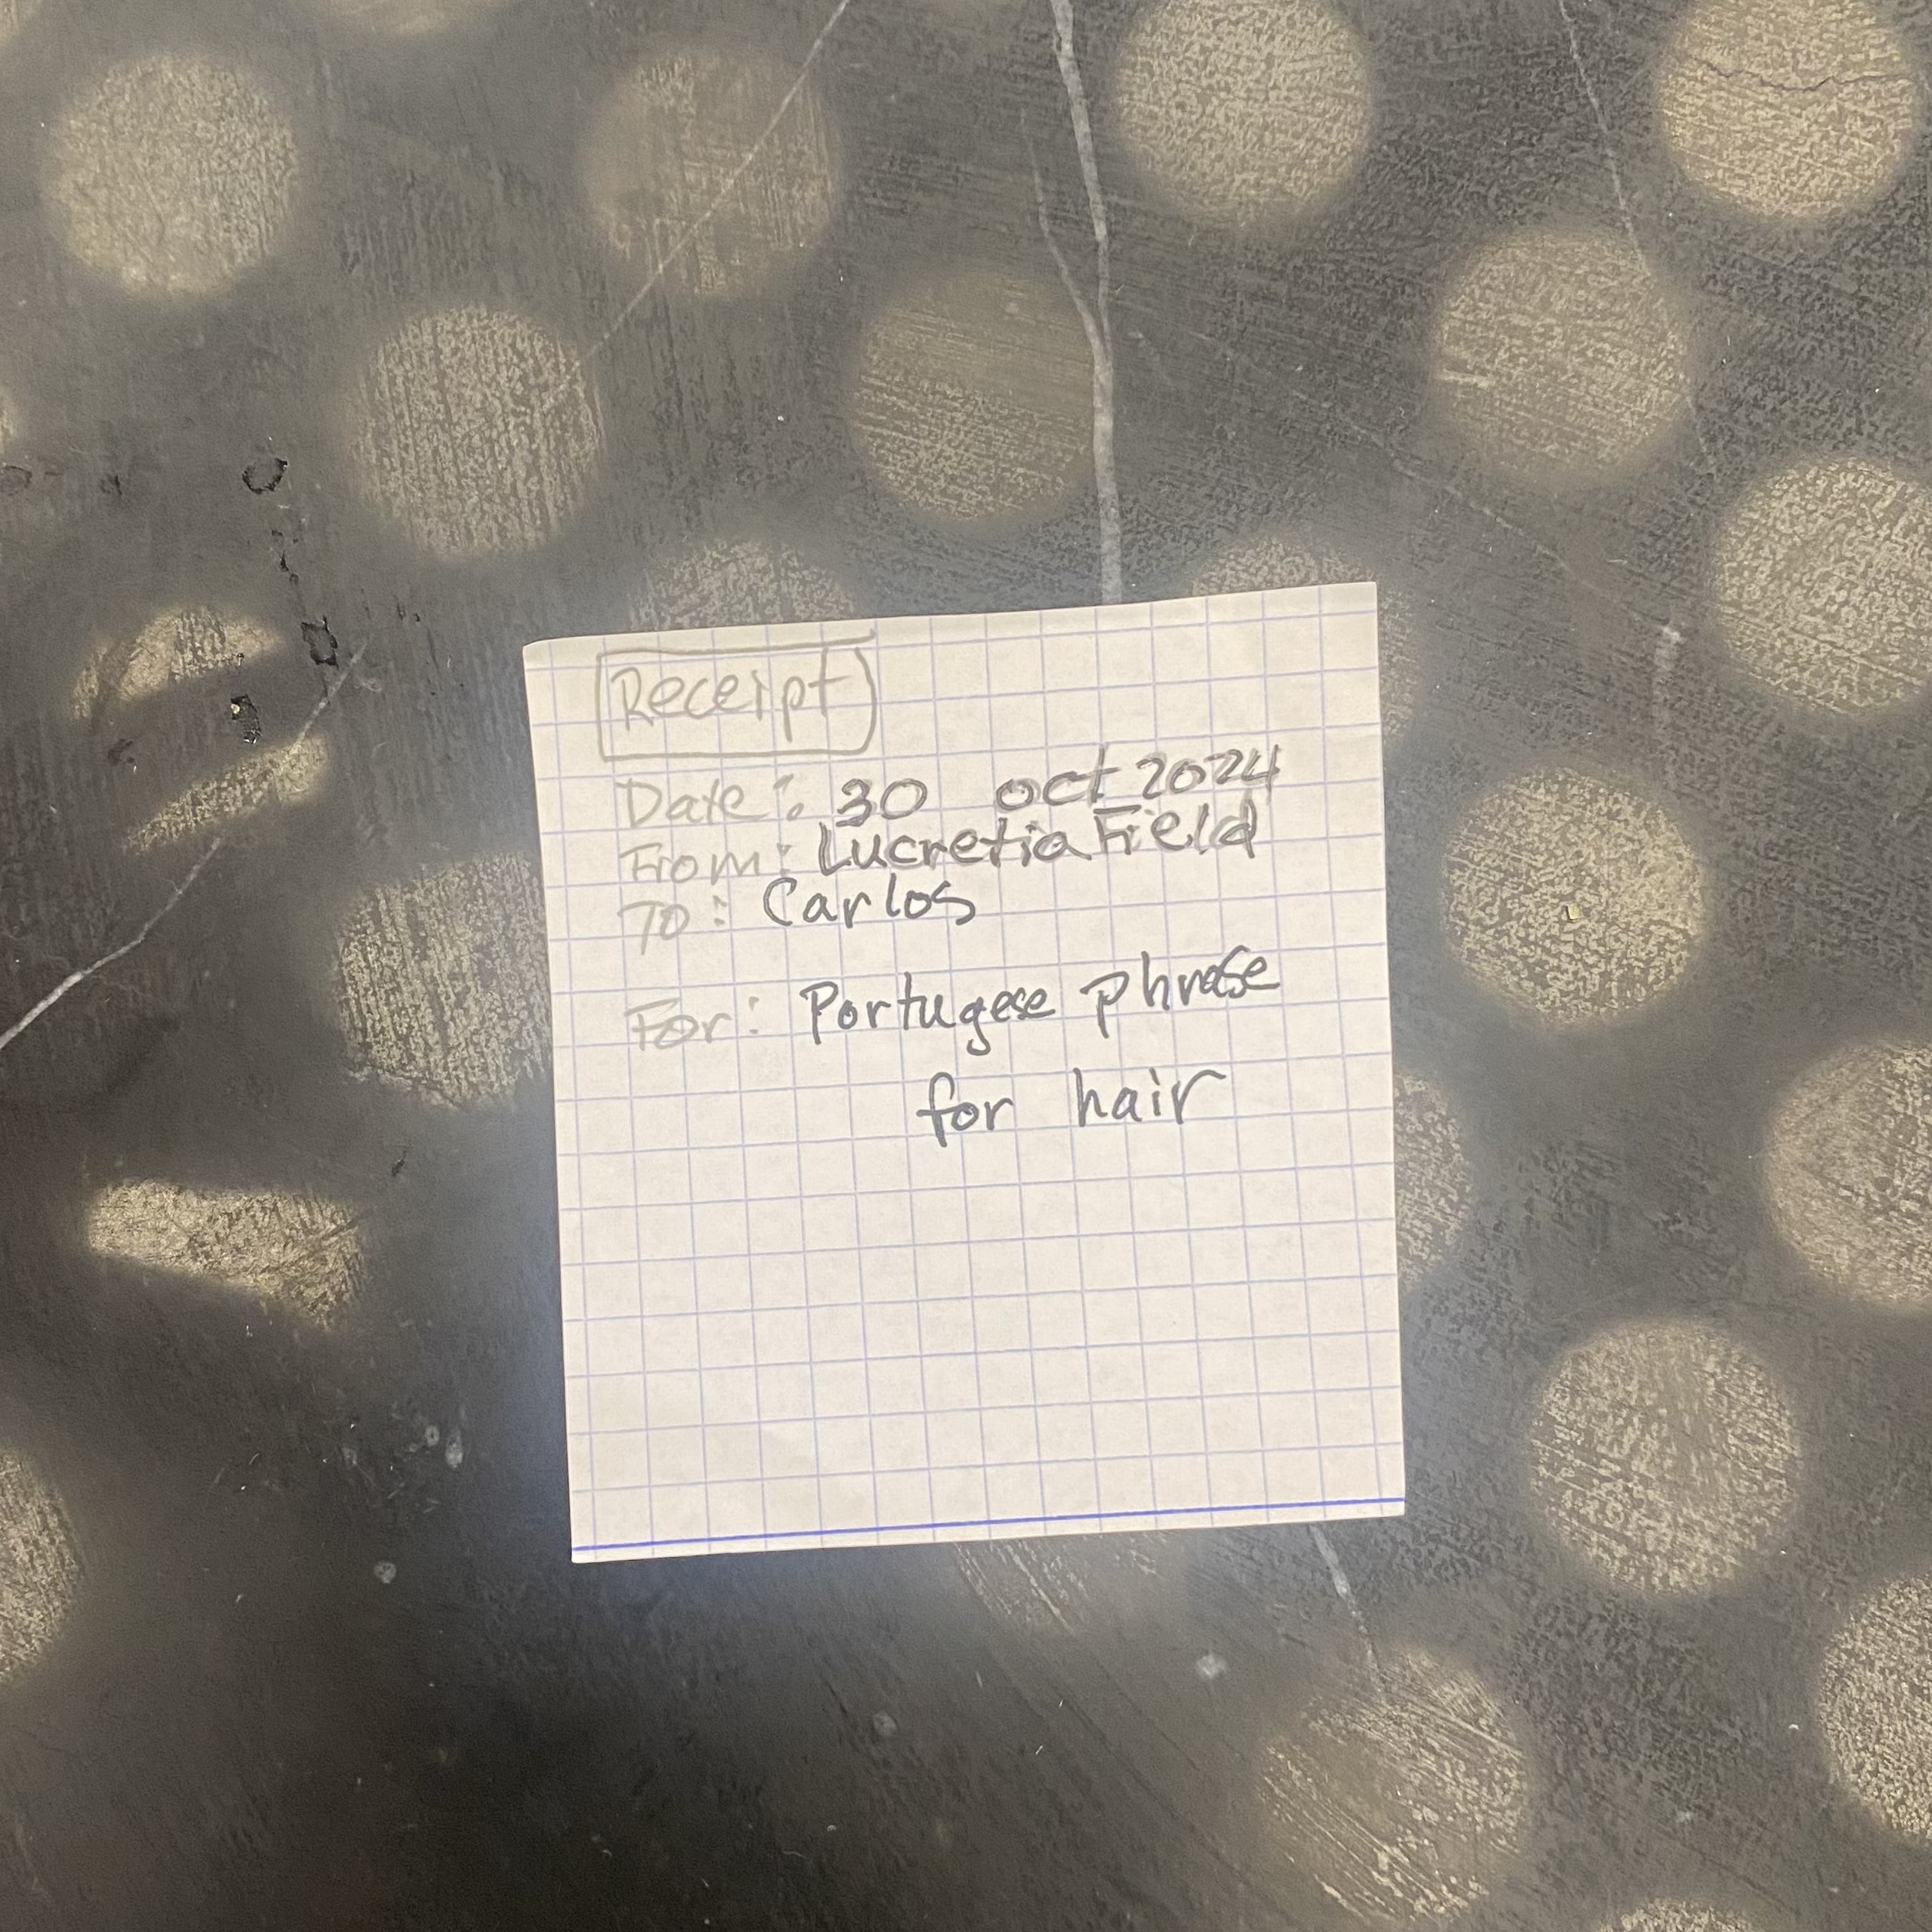 Receipt
Date: 30 oct 2024
From: Lucretia Field
To: Carlos
For: Portugese phrase
for hair